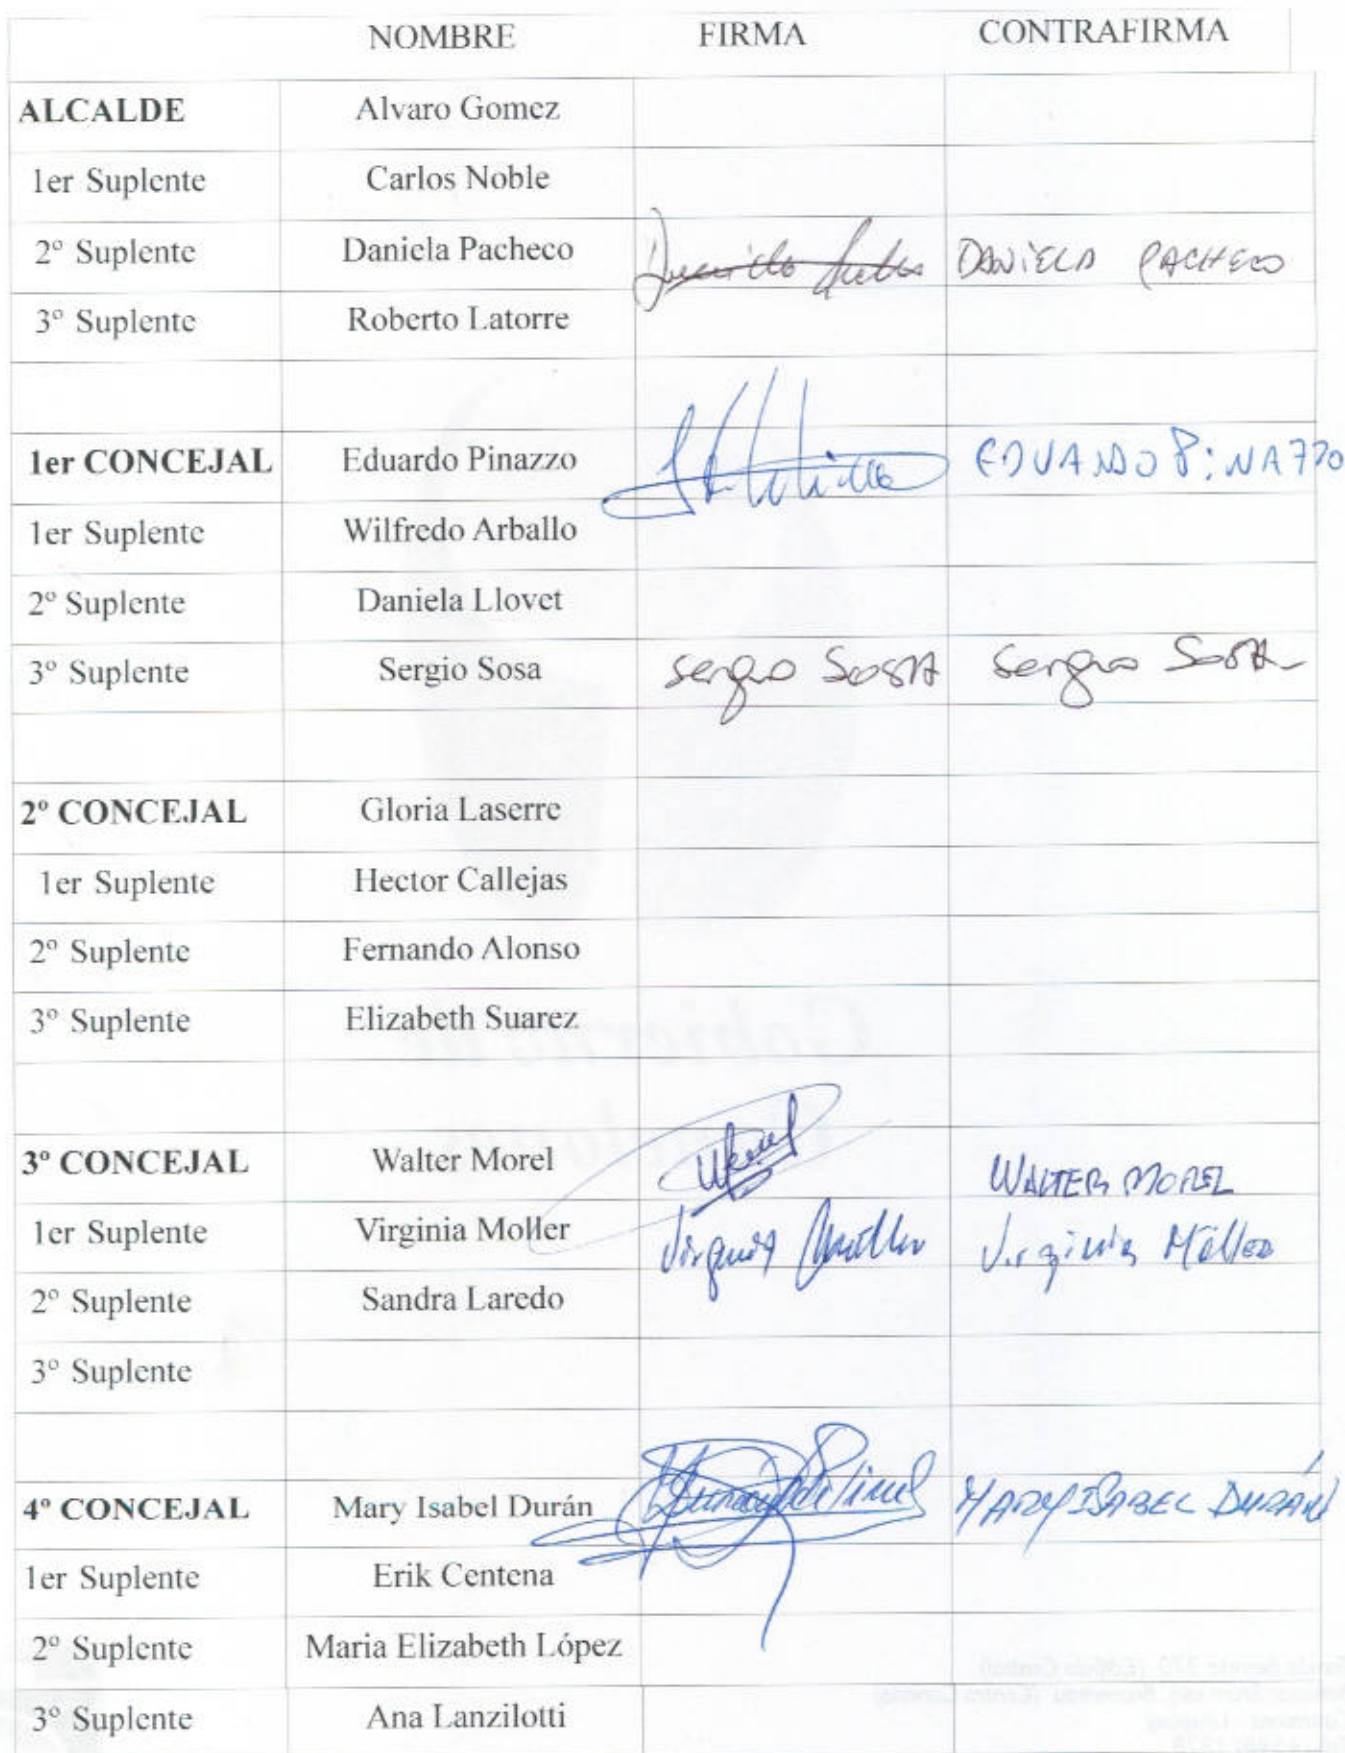 NOMBRE FIRMA CONTRAFIRMA
ALCALDE Alvaro Gomez
1er Suplente Carlos Noble
2º Suplente Daniela Pacheco DANIELA PACHECO
3º Suplente Roberto Latorre
1er CONCEJAL Eduardo Pinazzo EDUARDO PiNAZZO
1er Suplente Wilfredo Arballo
2º Suplente Daniela Llovet
3º Suplente Sergio Sosa Sergio Sosa Sergio Sosa
2º CONCEJAL Gloria Laserre
1er Suplente Hector Callejas
2º Suplente Fernando Alonso
3º Suplente Elizabeth Suarez
Gobierno de
3º CONCEJAL Walter Morel WALTER MOREL
1er Suplente Virginia Moller Virginia Möller Virginia Möller
2º Suplente Sandra Laredo
3º Suplente
4º CONCEJAL Mary Isabel Durán MARY ISABEL DURÁN
1er Suplente Erik Centena
2º Suplente Maria Elizabeth López
3º Suplente Ana Lanzilotti